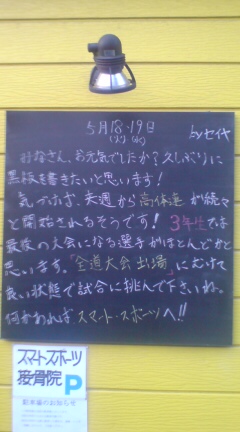 5月18・19日
(火)(水)
byセイヤ
みなさん、お元気でしたか?久しぶりに
黒板を書きたいと思います!
気づけば、来週から高体連が続々
と開始されるそうです!3年生では
最後の大会になる選手がほとんどかと
思います。「全道大会出場」にむけて
良い状態で試合に挑んで下さいね。
何かあれば、スマート・スポーツへ!!
スマートスポーツ
接骨院 P
駐車場のお知らせ